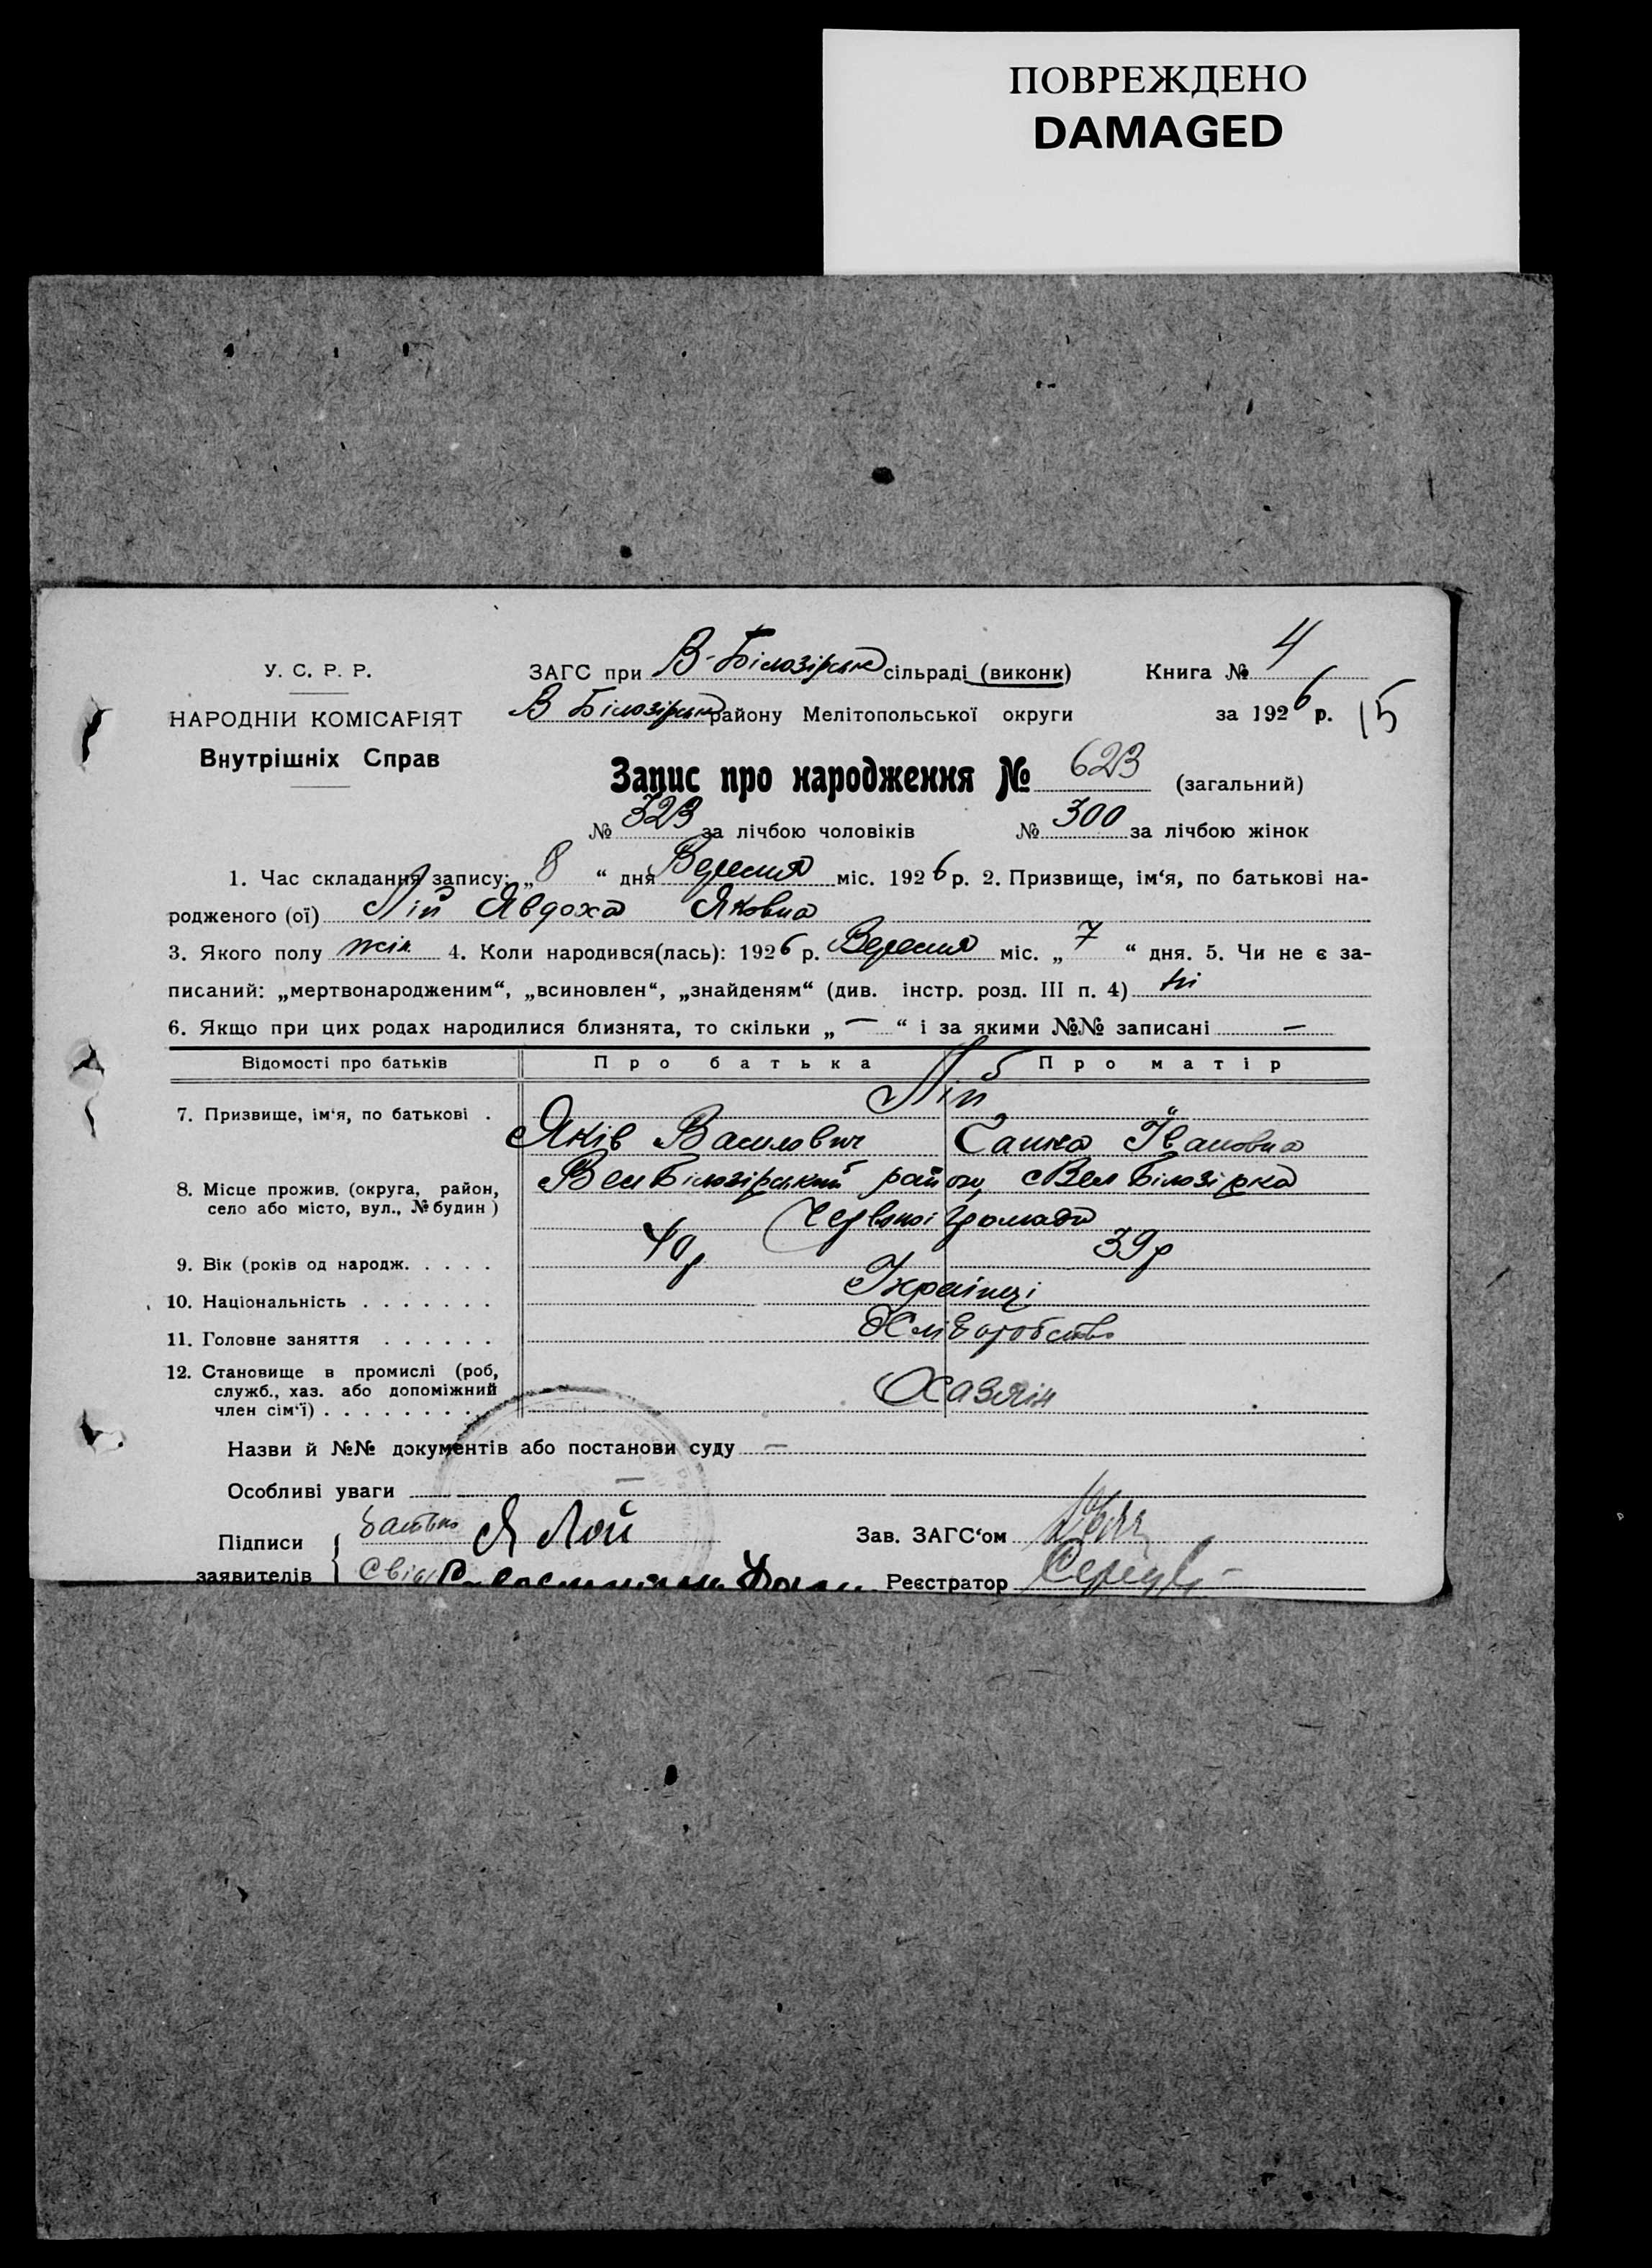 ПОВРЕЖДЕНО
DAMAGED
У. С. Р. Р.
НАРОДНІЙ КОМІСАРІЯТ
Внутрішніх Справ
ЗАГС при В-Білозірськ сільраді (виконк)
Книга № 4
В Білозірськ району Мелітопольської округи
за 1926 р. 15
Запис про народження № 623 (загальний)
№ 323 за лічбою чоловіків № 300 за лічбою жінок
1. Час складання запису: „8“ дня Вересня міс. 1926 р. 2. Призвище, ім‘я, по батькові на-
родженого (ої) Лій Явдоха Яковна
3. Якого полу жін. 4. Коли народився(лась): 1926 р. Вересня міс. „7“ дня. 5. Чи не є за-
писаний: „мертвонародженим“, „всиновлен“, „знайденям“ (див. інстр. розд. III п. 4) ні
6. Якщо при цих родах народилися близнята, то скільки „—“ і за якими №№ записані —
Відомості про батьків Про батька Про матір
Лій
7. Призвище, ім‘я, по батькові .
Яків Василович Ганна Івановна
8. Місце прожив. (округа, район,
село або місто, вул., № будин )
Вел Білозірський район, с Вел Білозірка
Червоної Громади
9. Вік (років од народж. . . . . 40 р 39 р
10. Національність . . . . . . . Українці
11. Головне заняття . . . . . . Хліборобство
12. Становище в промислі (роб,
служб., хаз. або допоміжний
член сім‘ї) . . . . . . . . .
Хазяїн
Назви й №№ документів або постанови суду —
Особливі уваги —
Підписи
заявителів
батько Я Лой
Зав. ЗАГС‘ом
Реєстратор